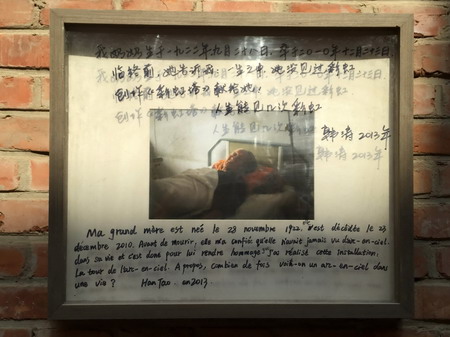 我奶奶生于一九二二年九月二十八日，卒于二〇一〇年十二月二十三日
临终前，她告诉我，一生之中她没见过彩虹
创作《彩虹塔》献给她！
人生能见几次彩虹
韩涛 2013年
Ma grand mère est née le 28 novembre 1922, est décédée le 23
décembre 2010. Avant de mourir, elle m'a confié qu'elle n'avait jamais vu d'arc-en-ciel
dans sa vie et c'est donc pour lui rendre hommage j'ai réalisé cette installation,
La tour de l'arc-en-ciel. A propos, combien de fois voit-on un arc-en-ciel dans
une vie ? Han Tao . en 2013